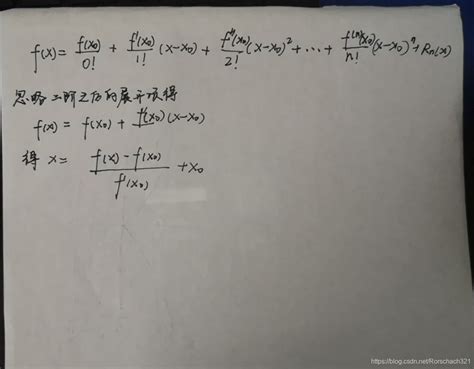 f(x) = f(x₀)/0! + f'(x₀)/1! (x-x₀) + f''(x₀)/2! (x-x₀)² + ... + f⁽ⁿ⁾(x₀)/n! (x-x₀)ⁿ + Rn(x)
忽略二阶之后的展开项得
f(x) = f(x₀) + f'(x₀)(x-x₀)
得 x = (f(x) - f(x₀))/f'(x₀) + x₀
https://blog.csdn.net/Rorschach321